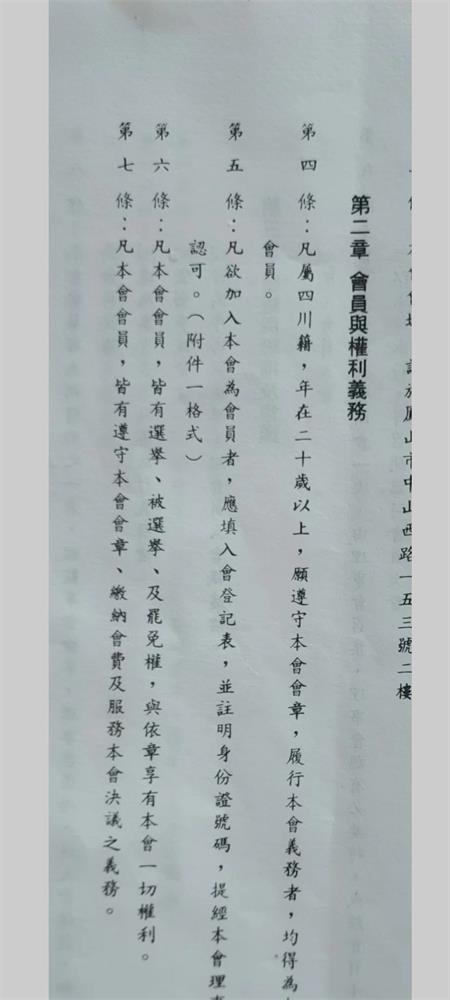 鳳山市中山西路一五三號二樓
第二章 會員與權利義務
第四條：凡屬四川籍，年在二十歲以上，願遵守本會會章，履行本會義務者，均得為
會員。
第五條：凡欲加入本會為會員者，應填入會登記表，並註明身份證號碼，提經本會理
認可。（附件一格式）
第六條：凡本會會員，皆有選舉、被選舉、及罷免權，與依章享有本會一切權利。
第七條：凡本會會員，皆有遵守本會會章、繳納會費及服務本會決議之義務。